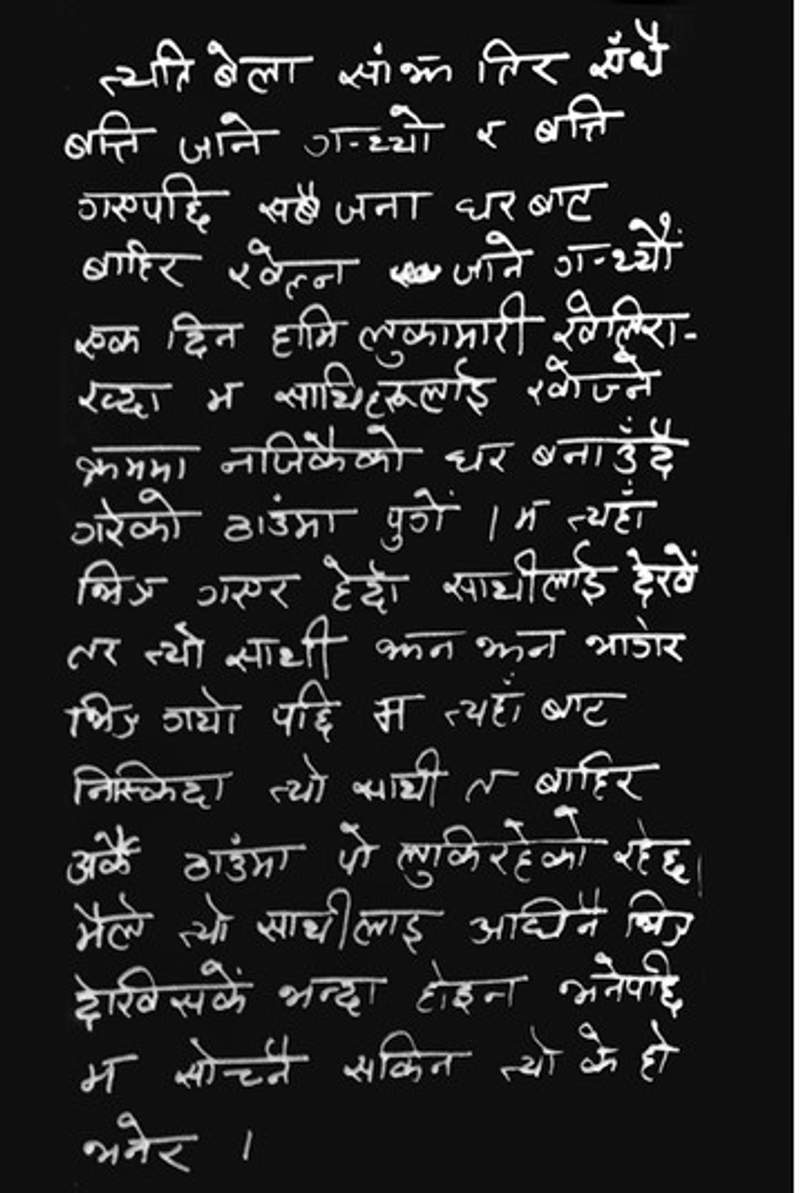 त्यति बेला सांझ तिर सँधै
बत्ति जाने गर्‍थ्यो र बत्ति
गएपछि सबै जना घर बाट
बाहिर खेल्न जाने गर्‍थ्यौं
एक दिन हामि लुकामारी खेलिरा-
ख्दा म साथिहरूलाई खोज्ने
क्रममा नजिकैको घर बनाउँदै
गरेको ठाउंमा पुगें । म त्यहाँ
भित्र गएर हेर्दा साथीलाई देखें
तर त्यो साथी झन झन भागेर
भित्र गयो पछि म त्यहाँ बाट
निस्किदा त्यो साथी त बाहिर
अर्कै ठाउंमा पो लुकिरहेको रहेछ।
मैले त्यो साथीलाइ अघिनै भित्र
देखिसकें भन्दा होइन भनेपछि
म सोच्नै सकिन त्यो के हो
भनेर ।